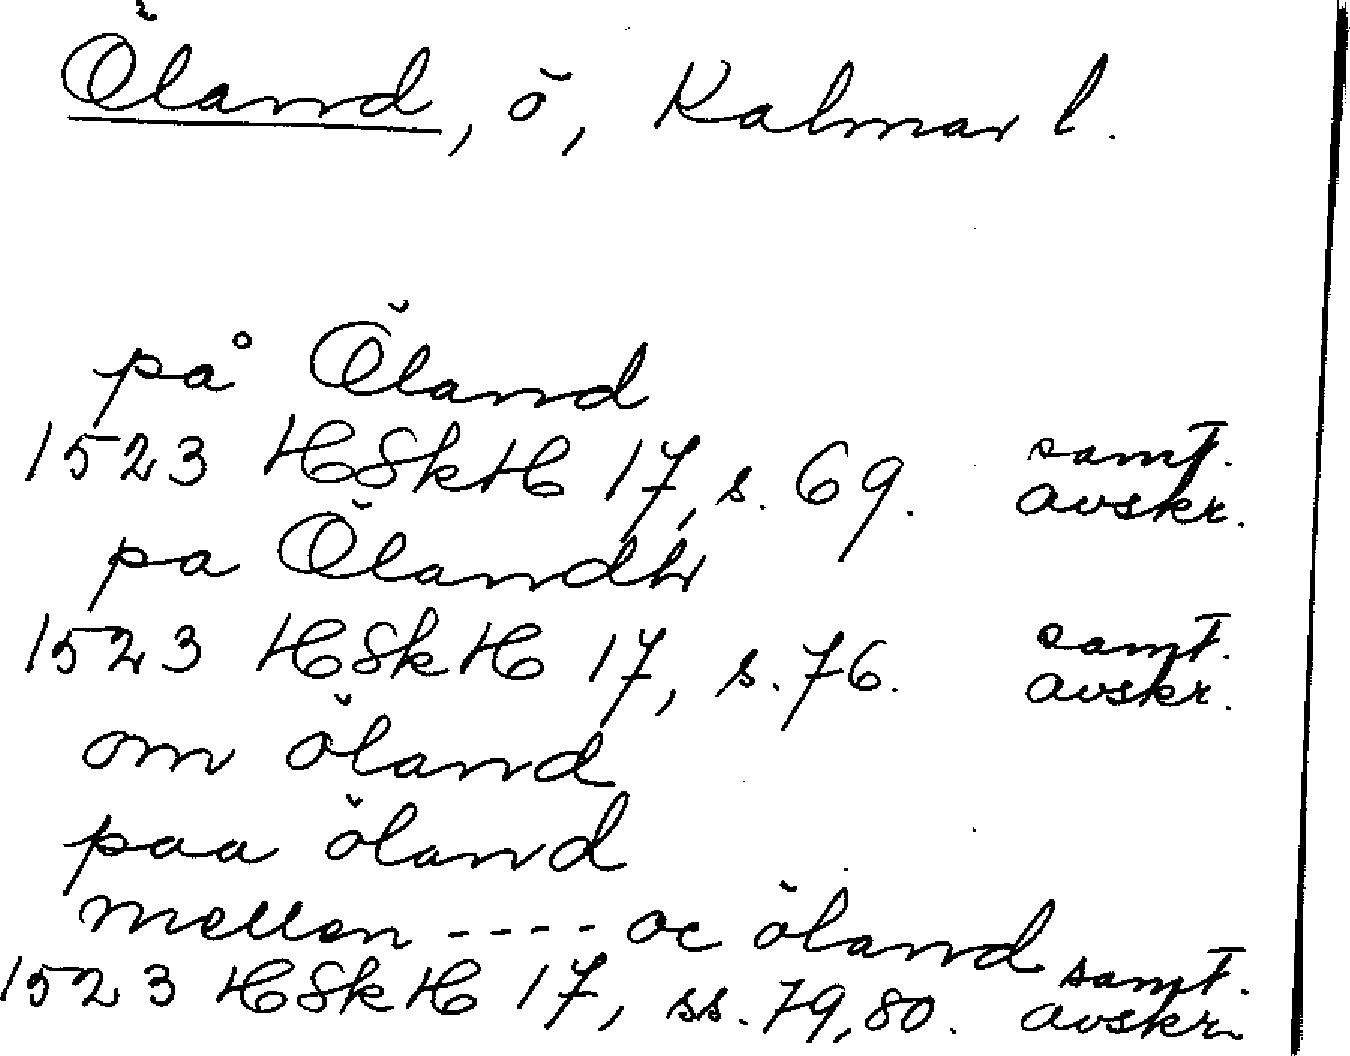 Öland, ö, Kalmar l.
på Öland
1523 HSkH 17, s. 69. samt. avskr.
pa Ölandh
1523 HSkH 17, s. 76. samt. avskr.
om öland
paa öland
mellen ---- oc öland
1523 HSkH 17, ss. 79, 80. samt. avskr.